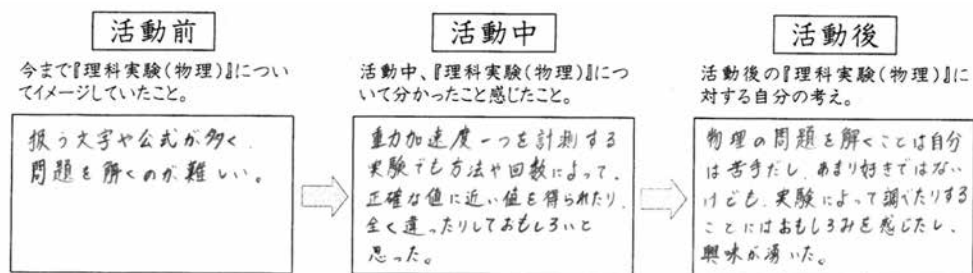 活動前
今まで『理科実験(物理)』につい
てイメージしていたこと。
扱う文字や公式が多く、
問題を解くのが難しい。
活動中
活動中、『理科実験(物理)』につ
いて分かったこと感じたこと。
重力加速度一つを計測する
実験でも方法や回数によって、
正確な値に近い値を得られたり、
全く違ったりしておもしろいと
思った。
活動後
活動後の『理科実験(物理)』に
対する自分の考え。
物理の問題を解くことは自分
は苦手だし、あまり好きではない
けども、実験によって調べたりする
ことにはおもしろみを感じたし、
興味が湧いた。